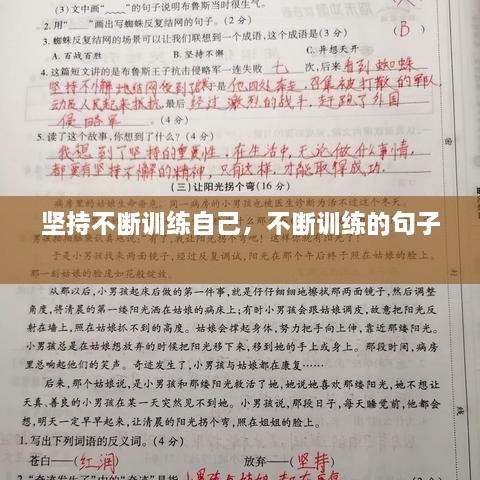 (3)文中画"﹏﹏"的句子说明布鲁斯当时很生气。
2.用"——"画出写蜘蛛反复结网的句子。(2分)
3.蜘蛛反复结网可以让我们联想到一个成语,这个成语是(3分) (B)
A.百战百胜 B.坚持不懈 C.异想天开
4.这篇短文讲的是布鲁斯王子抗击侵略军一连失败 七 次,后来 看到蜘蛛
坚持不懈地结网
他四处奔走,召集被打散的军队,
动员人民起来抵抗,最后 经过激烈的战斗,赶跑了外国
侵略军。(4分)
5.读了这个故事,你想到了什么?(4分)
我想到了坚持的重要性,在生活中,无论做什么事情,
都要有坚持不懈的精神,只有这样,才能取得成功。
(三)让阳光拐个弯(16分)
病房里的姑娘生命垂危。同一病房的小男孩也被医生诊断为活不过这个冬天。
坚持不断训练自己,不断训练的句子
于是小男孩找来两面镜子,经过反复调试,阳光在那个午后终于照在姑娘的脸上。
看到姑娘的脸庞如花般绽放。
从那以后,小男孩起床后做的第一件事,就是仔仔细细地擦拭那两面镜子,然后调整
角度,将清晨的第一缕阳光洒在姑娘的病床上;有时小男孩会跟姑娘调皮,故意把阳光反
射在墙上,照在姑娘抓不到的高度。姑娘会撑起身体,努力把手向上伸,靠近那缕阳光。
小男孩总是在姑娘想放弃的时候把阳光移下来,移到她的手上或身上。那段时间,病房
里总会响起他们的笑声。奇迹发生了,小男孩与姑娘都在康复……
后来,那个姑娘说,是小男孩和那缕阳光救活了她,她说她喜欢那缕阳光,她不想让
天真、善良的小男孩在某一天突然见不到她。小男孩说,那段日子,每天睡觉前,他都会
想,明天一定早早起来,让清晨的阳光拐个弯,照在姐姐的脸上。
1.写出下列词语的反义词。(4分)
苍白——(红润) 放弃——(坚持)
密
线